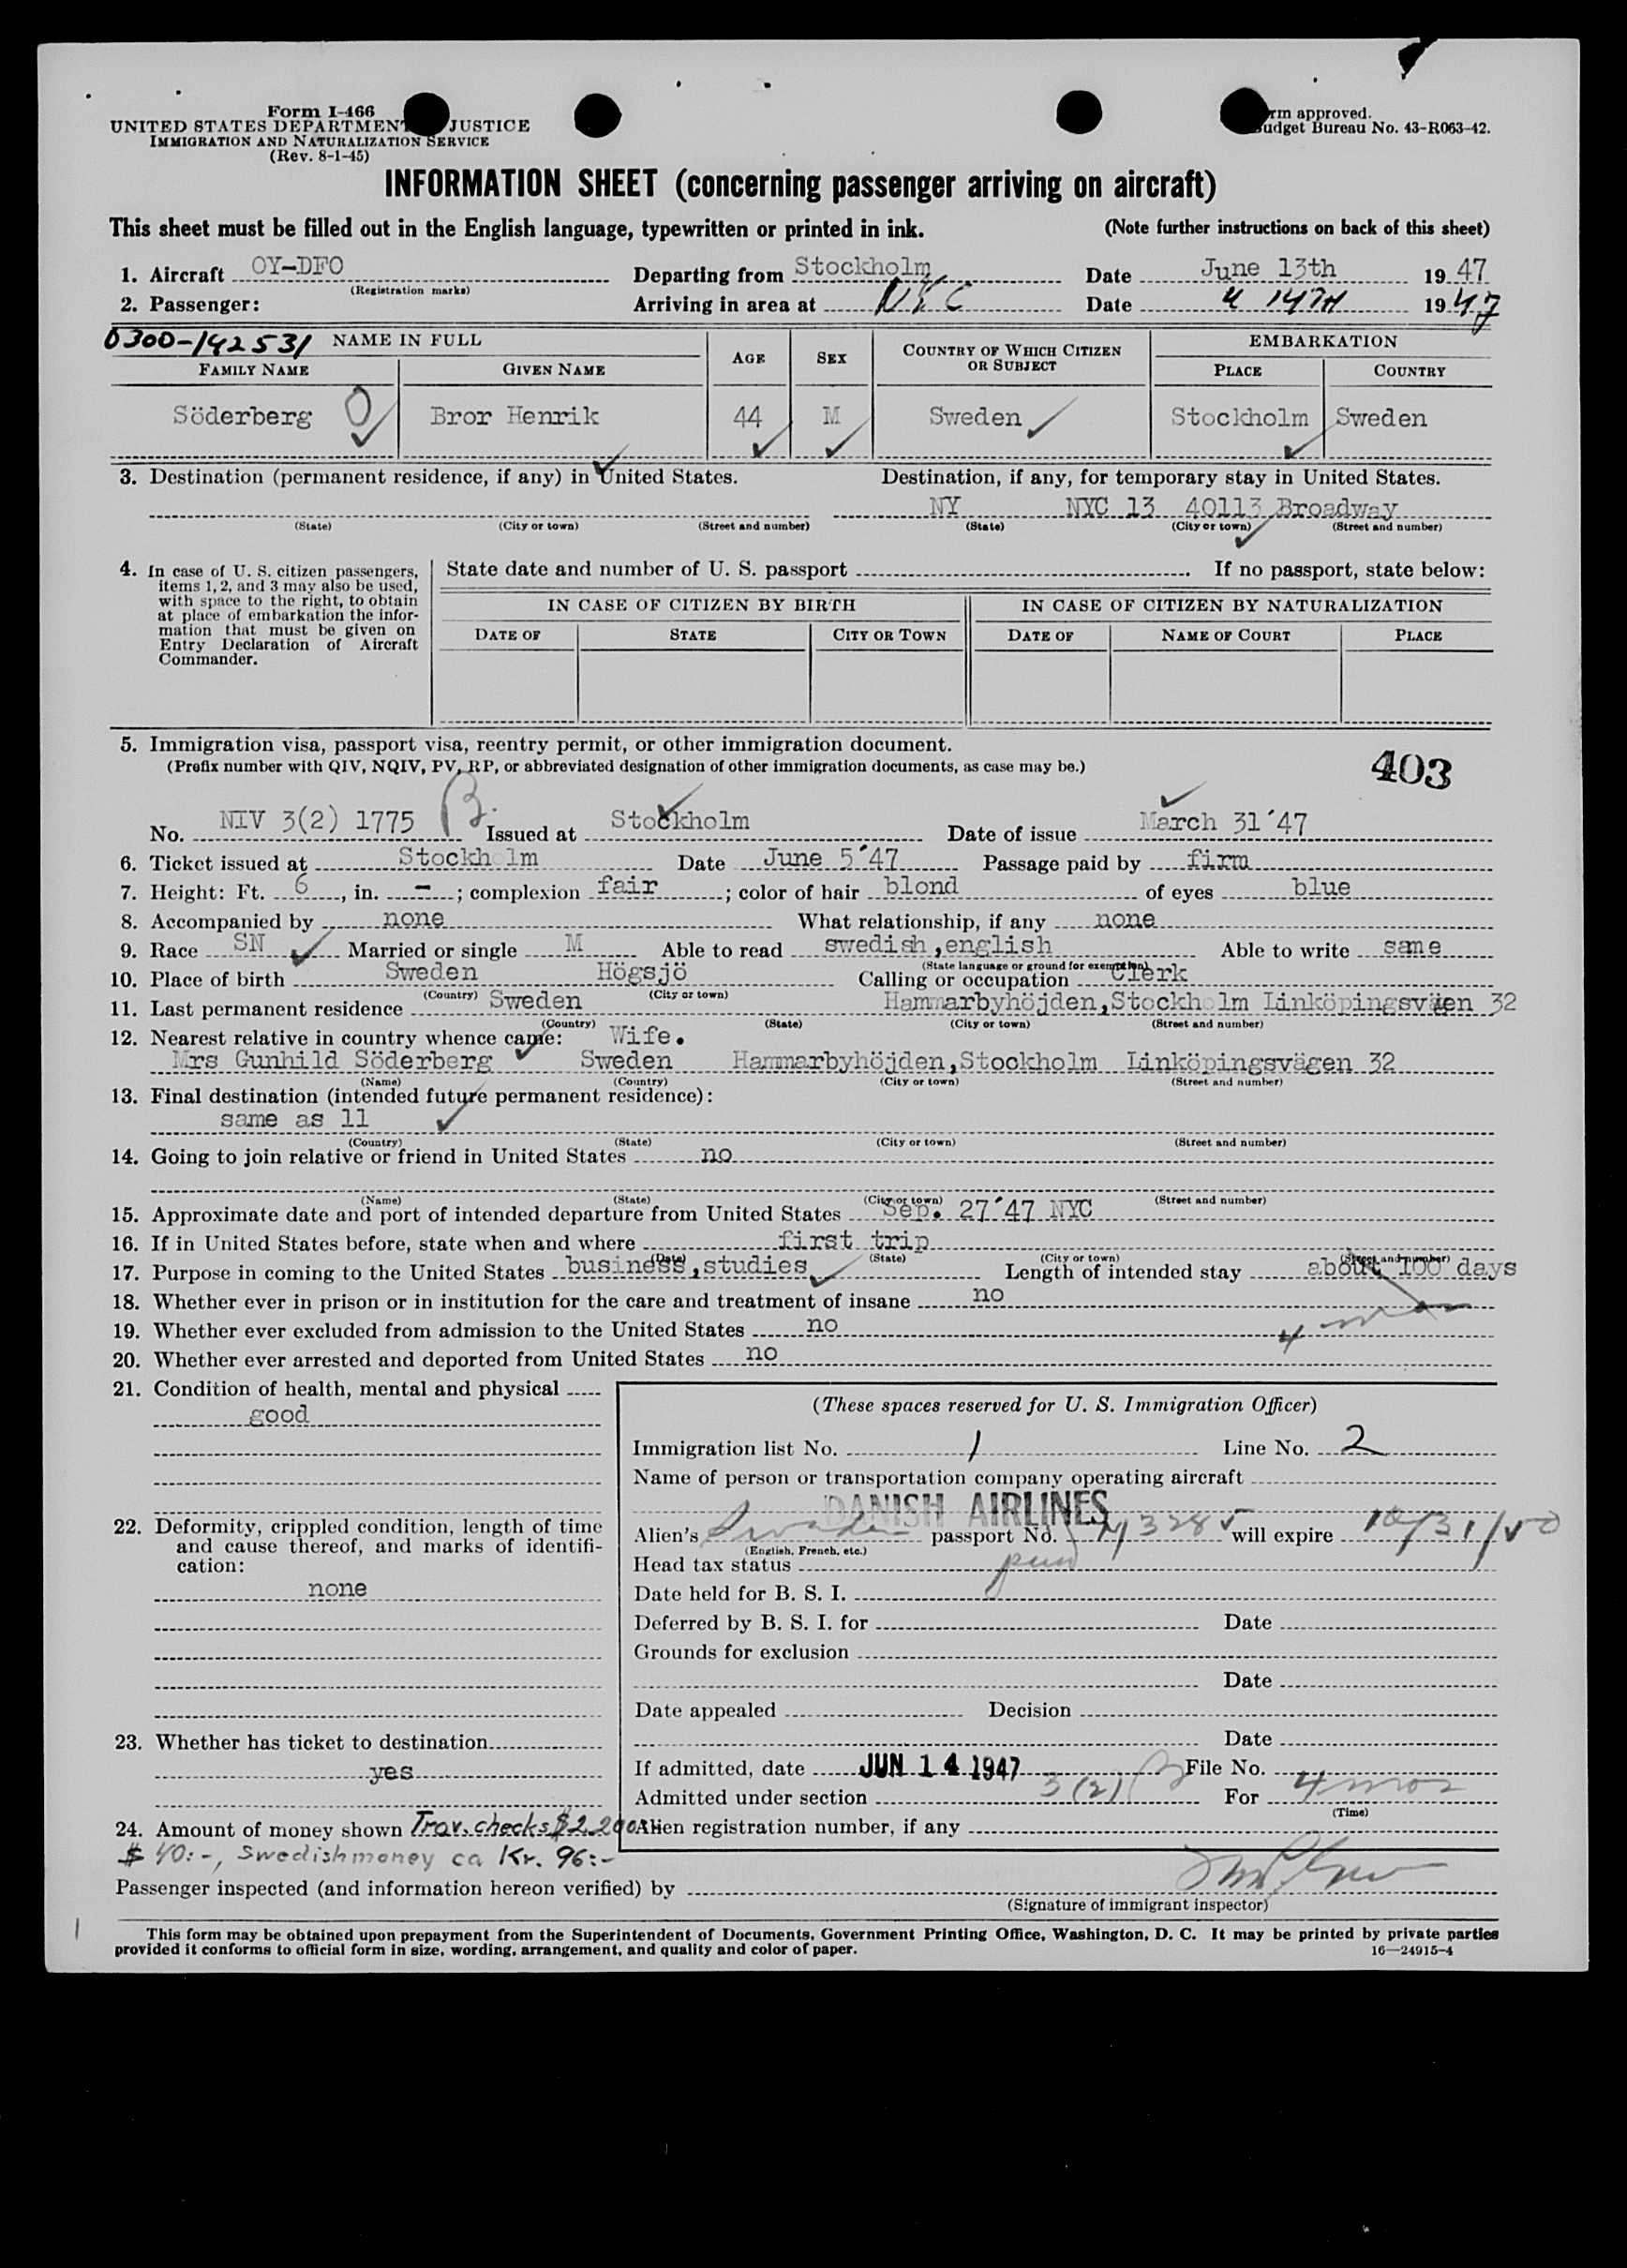 Form I-466
UNITED STATES DEPARTMENT JUSTICE
IMMIGRATION AND NATURALIZATION SERVICE
(Rev. 8-1-45)
rm approved.
udget Bureau No. 43-R063-42.
INFORMATION SHEET (concerning passenger arriving on aircraft)
This sheet must be filled out in the English language, typewritten or printed in ink. (Note further instructions on back of this sheet)
1. Aircraft OY-DFO Departing from Stockholm Date June 13th 19 47
(Registration marks)
2. Passenger: Arriving in area at NYC Date " 14TH 19 47
0300-142531 NAME IN FULL AGE SEX COUNTRY OF WHICH CITIZEN OR SUBJECT EMBARKATION
FAMILY NAME GIVEN NAME PLACE COUNTRY
Söderberg Bror Henrik 44 M Sweden Stockholm Sweden
3. Destination (permanent residence, if any) in United States. Destination, if any, for temporary stay in United States.
NY NYC 13 40113 Broadway
(State) (City or town) (Street and number) (State) (City or town) (Street and number)
4. In case of U. S. citizen passengers, items 1, 2, and 3 may also be used, with space to the right, to obtain at place of embarkation the information that must be given on Entry Declaration of Aircraft Commander.
State date and number of U. S. passport . If no passport, state below:
IN CASE OF CITIZEN BY BIRTH IN CASE OF CITIZEN BY NATURALIZATION
DATE OF STATE CITY OR TOWN DATE OF NAME OF COURT PLACE
5. Immigration visa, passport visa, reentry permit, or other immigration document.
(Prefix number with QIV, NQIV, PV, RP, or abbreviated designation of other immigration documents, as case may be.) 403
No. NIV 3(2) 1775 B. Issued at Stockholm Date of issue March 31´47
6. Ticket issued at Stockholm Date June 5´47 Passage paid by firm
7. Height: Ft. 6, in. -; complexion fair; color of hair blond of eyes blue
8. Accompanied by none What relationship, if any none
9. Race SN Married or single M Able to read swedish,english Able to write same
(State language or ground for exemption)
10. Place of birth Sweden Högsjö Calling or occupation Clerk
(Country) (City or town)
11. Last permanent residence Sweden Hammarbyhöjden,Stockholm Linköpingsvägen 32
(Country) (State) (City or town) (Street and number)
12. Nearest relative in country whence came: Wife.
Mrs Gunhild Söderberg Sweden Hammarbyhöjden,Stockholm Linköpingsvägen 32
(Name) (Country) (City or town) (Street and number)
13. Final destination (intended future permanent residence):
same as 11
(Country) (State) (City or town) (Street and number)
14. Going to join relative or friend in United States no
(Name) (State) (City or town) (Street and number)
15. Approximate date and port of intended departure from United States Sep. 27´47 NYC
16. If in United States before, state when and where first trip
(Date) (State) (City or town) (Street and number)
17. Purpose in coming to the United States business,studies Length of intended stay about 100 days
18. Whether ever in prison or in institution for the care and treatment of insane no
19. Whether ever excluded from admission to the United States no 4
20. Whether ever arrested and deported from United States no
21. Condition of health, mental and physical
good
22. Deformity, crippled condition, length of time and cause thereof, and marks of identification:
none
23. Whether has ticket to destination
yes
24. Amount of money shown Trav. checks $ 2.200:-
$ 40:-, Swedish money ca Kr. 96:-
(These spaces reserved for U. S. Immigration Officer)
Immigration list No. 1 Line No. 2
Name of person or transportation company operating aircraft
DANISH AIRLINES
Alien's Sweden passport No. will expire 10/31/50
(English, French, etc.)
Head tax status
Date held for B. S. I.
Deferred by B. S. I. for Date
Grounds for exclusion
Date
Date appealed Decision
Date
If admitted, date JUN 14 1947 File No.
Admitted under section 3(2) B For 4 mos
(Time)
Alien registration number, if any
Passenger inspected (and information hereon verified) by
(Signature of immigrant inspector)
This form may be obtained upon prepayment from the Superintendent of Documents, Government Printing Office, Washington, D. C. It may be printed by private parties
provided it conforms to official form in size, wording, arrangement, and quality and color of paper. 16—24915-4